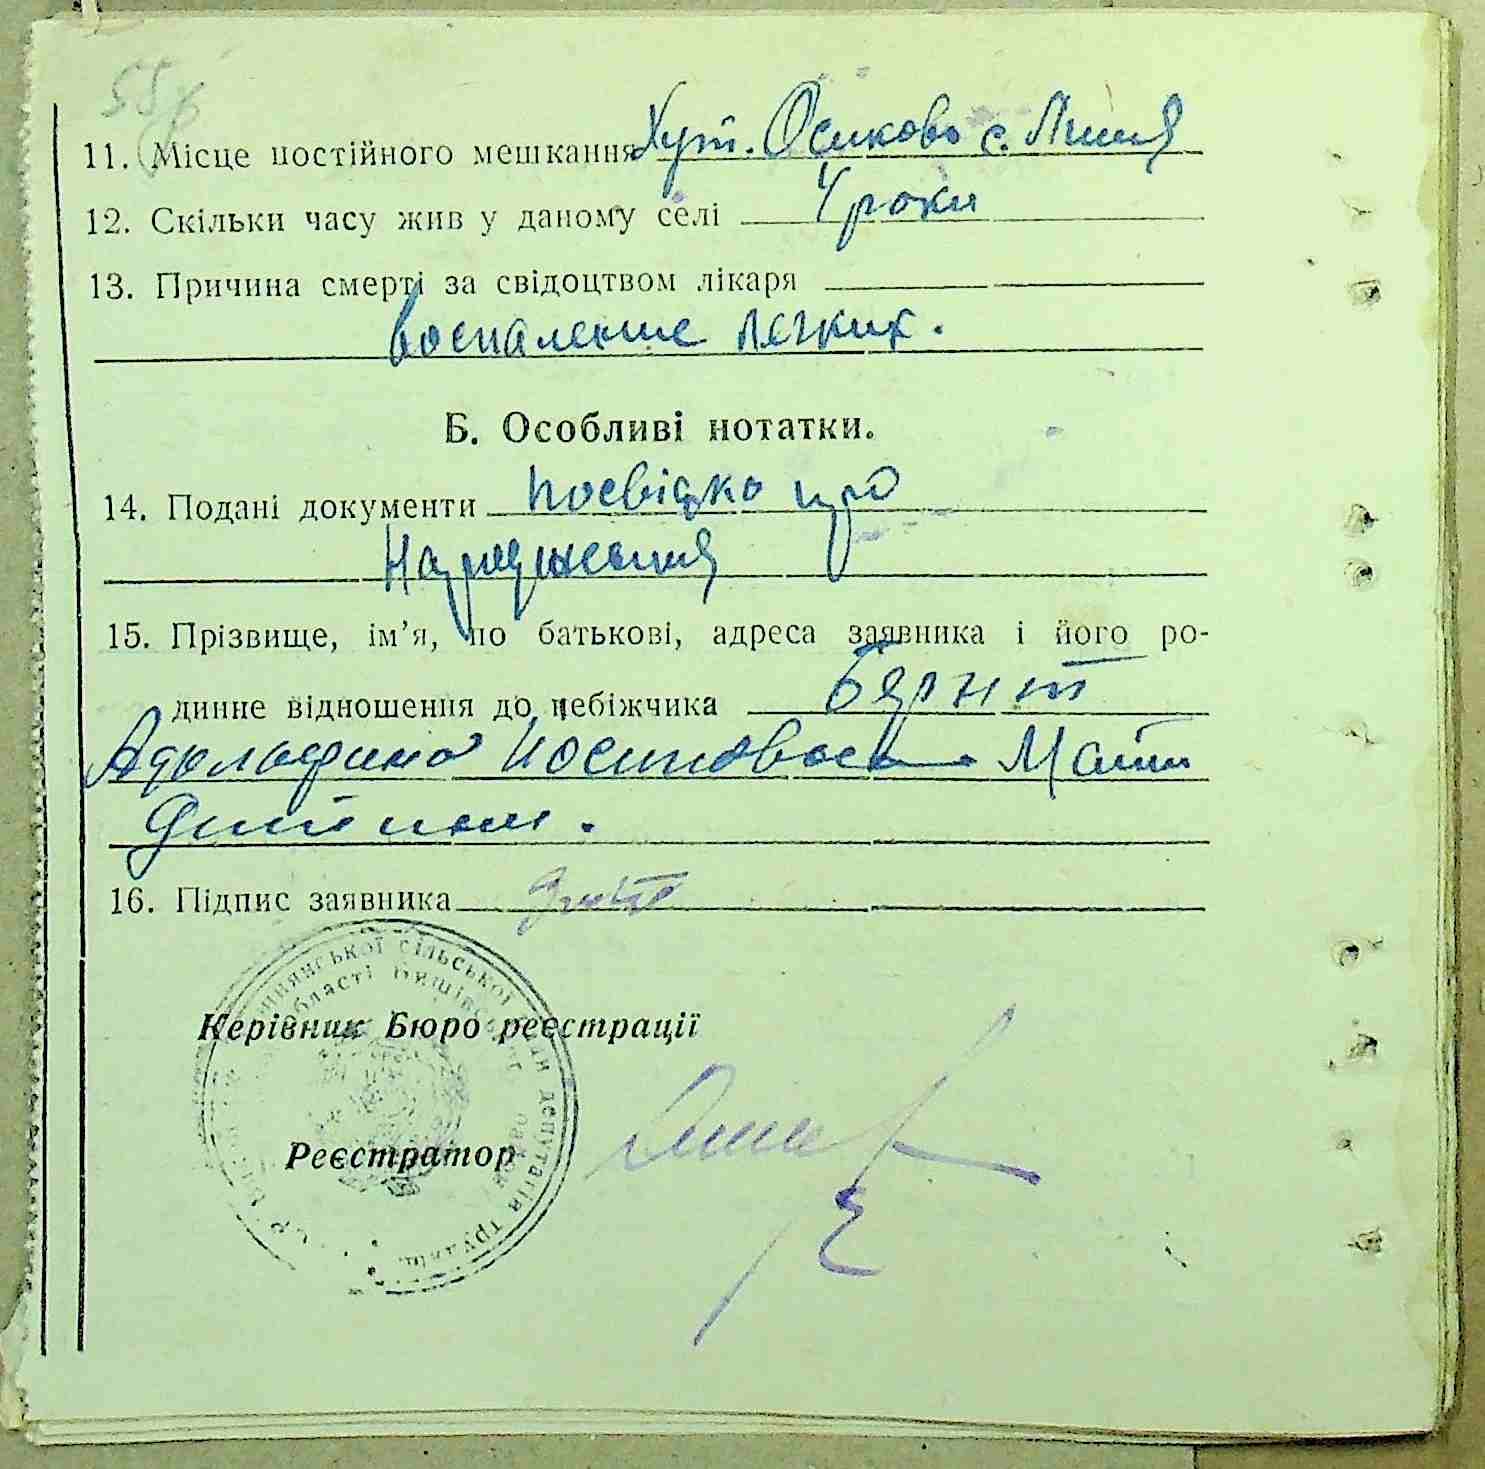 55
11. Місце постійного мешкання Хут. Осиково с.
12. Скільки часу жив у даному селі 4 роки
13. Причина смерті за свідоцтвом лікаря
воспаление легких.
Б. Особливі нотатки.
14. Подані документи посвідка про
народження
15. Прізвище, ім’я, по батькові, адреса заявника і його ро-
динне відношення до небіжчика Бернт
Адольфина Иосиповна Мати
дитини.
16. Підпис заявника
сільської ради депутатів трудящ
області
Керівник Бюро реєстрації
Реєстратор